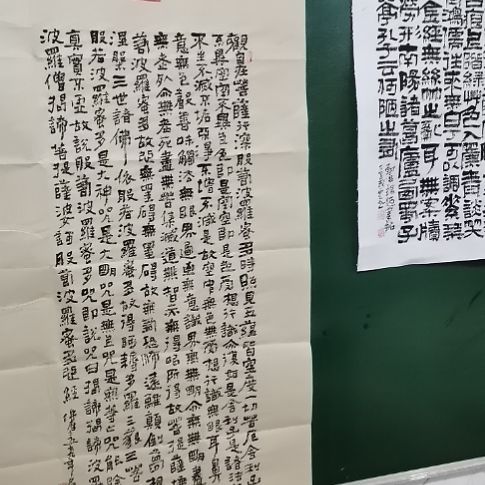 上階綠草色入簾青談笑
鴻儒往來無白丁可以調素琴
金經無絲竹之亂耳無案牘
勞形南陽諸葛廬西蜀子
亭孔子云何陋之有
觀自在菩薩行深般若波羅蜜多時照見五蘊皆空度一切苦厄舍利子
異空空不異色色即是空空即是色受想行識亦復如是舍利子是諸法
不生不滅不垢不淨不增不減是故空中無色無受想行識無眼耳鼻
意無色聲香味觸法無眼界乃至無意識界無無明亦無無明盡
無老死亦無老死盡無苦集滅道無智亦無得以無所得故菩提薩埵
般若波羅蜜多故心無罣礙無罣礙故無有恐怖遠離顛倒夢想
涅槃三世諸佛依般若波羅蜜多故得阿耨多羅三藐三菩
般若波羅蜜多是大神咒是大明咒是無上咒是無等等咒能除
真實不虛故說般若波羅蜜多咒即說咒曰揭諦揭諦波羅
波羅僧揭諦菩提薩婆訶般若波羅蜜多心經